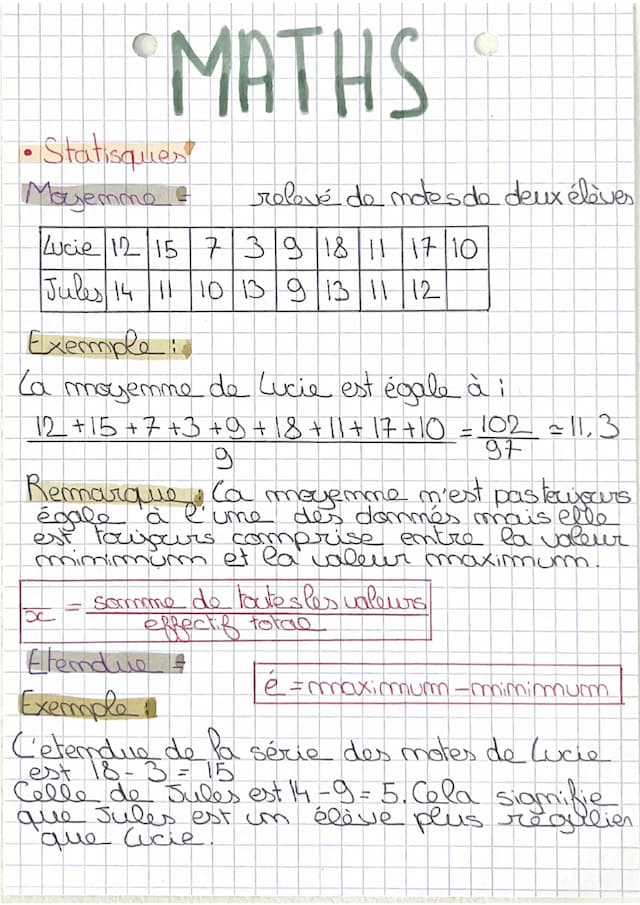 MATHS
• Statisques
Moyenne = relevé de notes de deux élèves
Lucie 12 15 7 3 9 18 11 17 10
Jules 14 11 10 13 9 13 11 12
Exemple :
La moyenne de Lucie est égale à :
12+15+7+3+9+18+11+17+10 = 102 ≃ 11,3
9 97
Remarque : La moyenne n'est pas toujours
égale à l'une des donnés mais elle
est toujours comprise entre la valeur
minimum et la valeur maximum.
x = somme de toutes les valeurs
effectif total
Etendue =
é = maximum - minimum
Exemple :
L'etendue de la série des notes de Lucie
est 18 - 3 = 15
Celle de Jules est 14 - 9 = 5. Cela signifie
que Jules est un élève plus régulier
que Lucie.